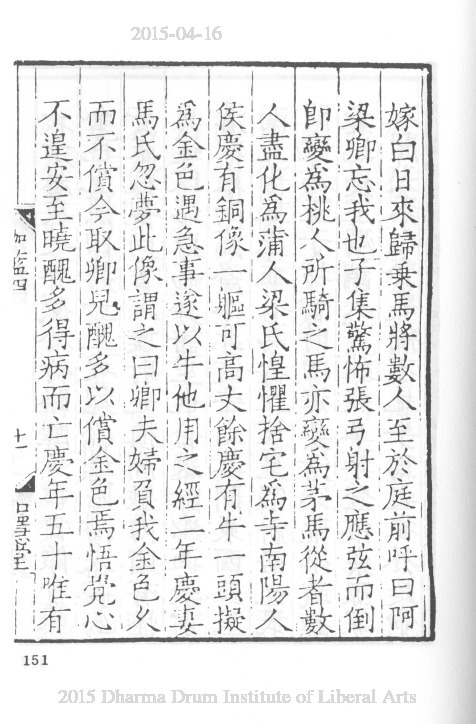 2015-04-16
嫁白日來歸乗馬將數人至於庭前呼曰阿
梁卿忘我也子集驚怖張弓射之應弦而倒
即變爲桃人所騎之馬亦變爲茅馬從者數
人盡化爲蒲人梁氏惶懼捨宅爲寺南陽人
侯慶有銅像一軀可高丈餘慶有牛一頭擬
爲金色遇急事遂以牛他用之經二年慶妻
馬氏忽夢此像謂之曰卿夫婦負我金色久
而不償今取卿兒醜多以償金色焉悟覺心
不遑安至曉醜多得病而亡慶年五十唯有
伽藍四
十一
151
2015 Dharma Drum Institute of Liberal Arts